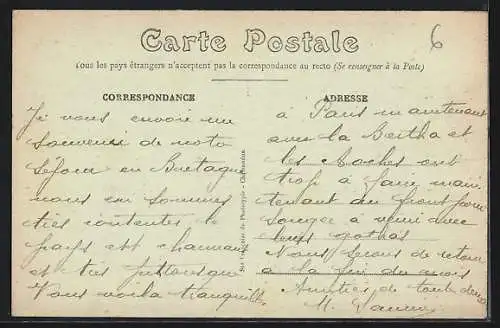 Carte Postale
6
Tous les pays étrangers n'acceptent pas la correspondance au recto (Se renseigner à la Poste)
CORRESPONDANCE
Je vous envoie un
souvenir de notre
séjour en Bretagne
nous en sommes
très contentes le
pays est charmant
et très pittoresque
Vous voilà tranquilles
ADRESSE
à Paris maintenant
avec la Bertha et
les Boches ont
trop à faire main
tenant au front pour
songer à venir avec
leurs gothas
Nous serons de retour
à la fin du mois
Amitiés de toute
M.